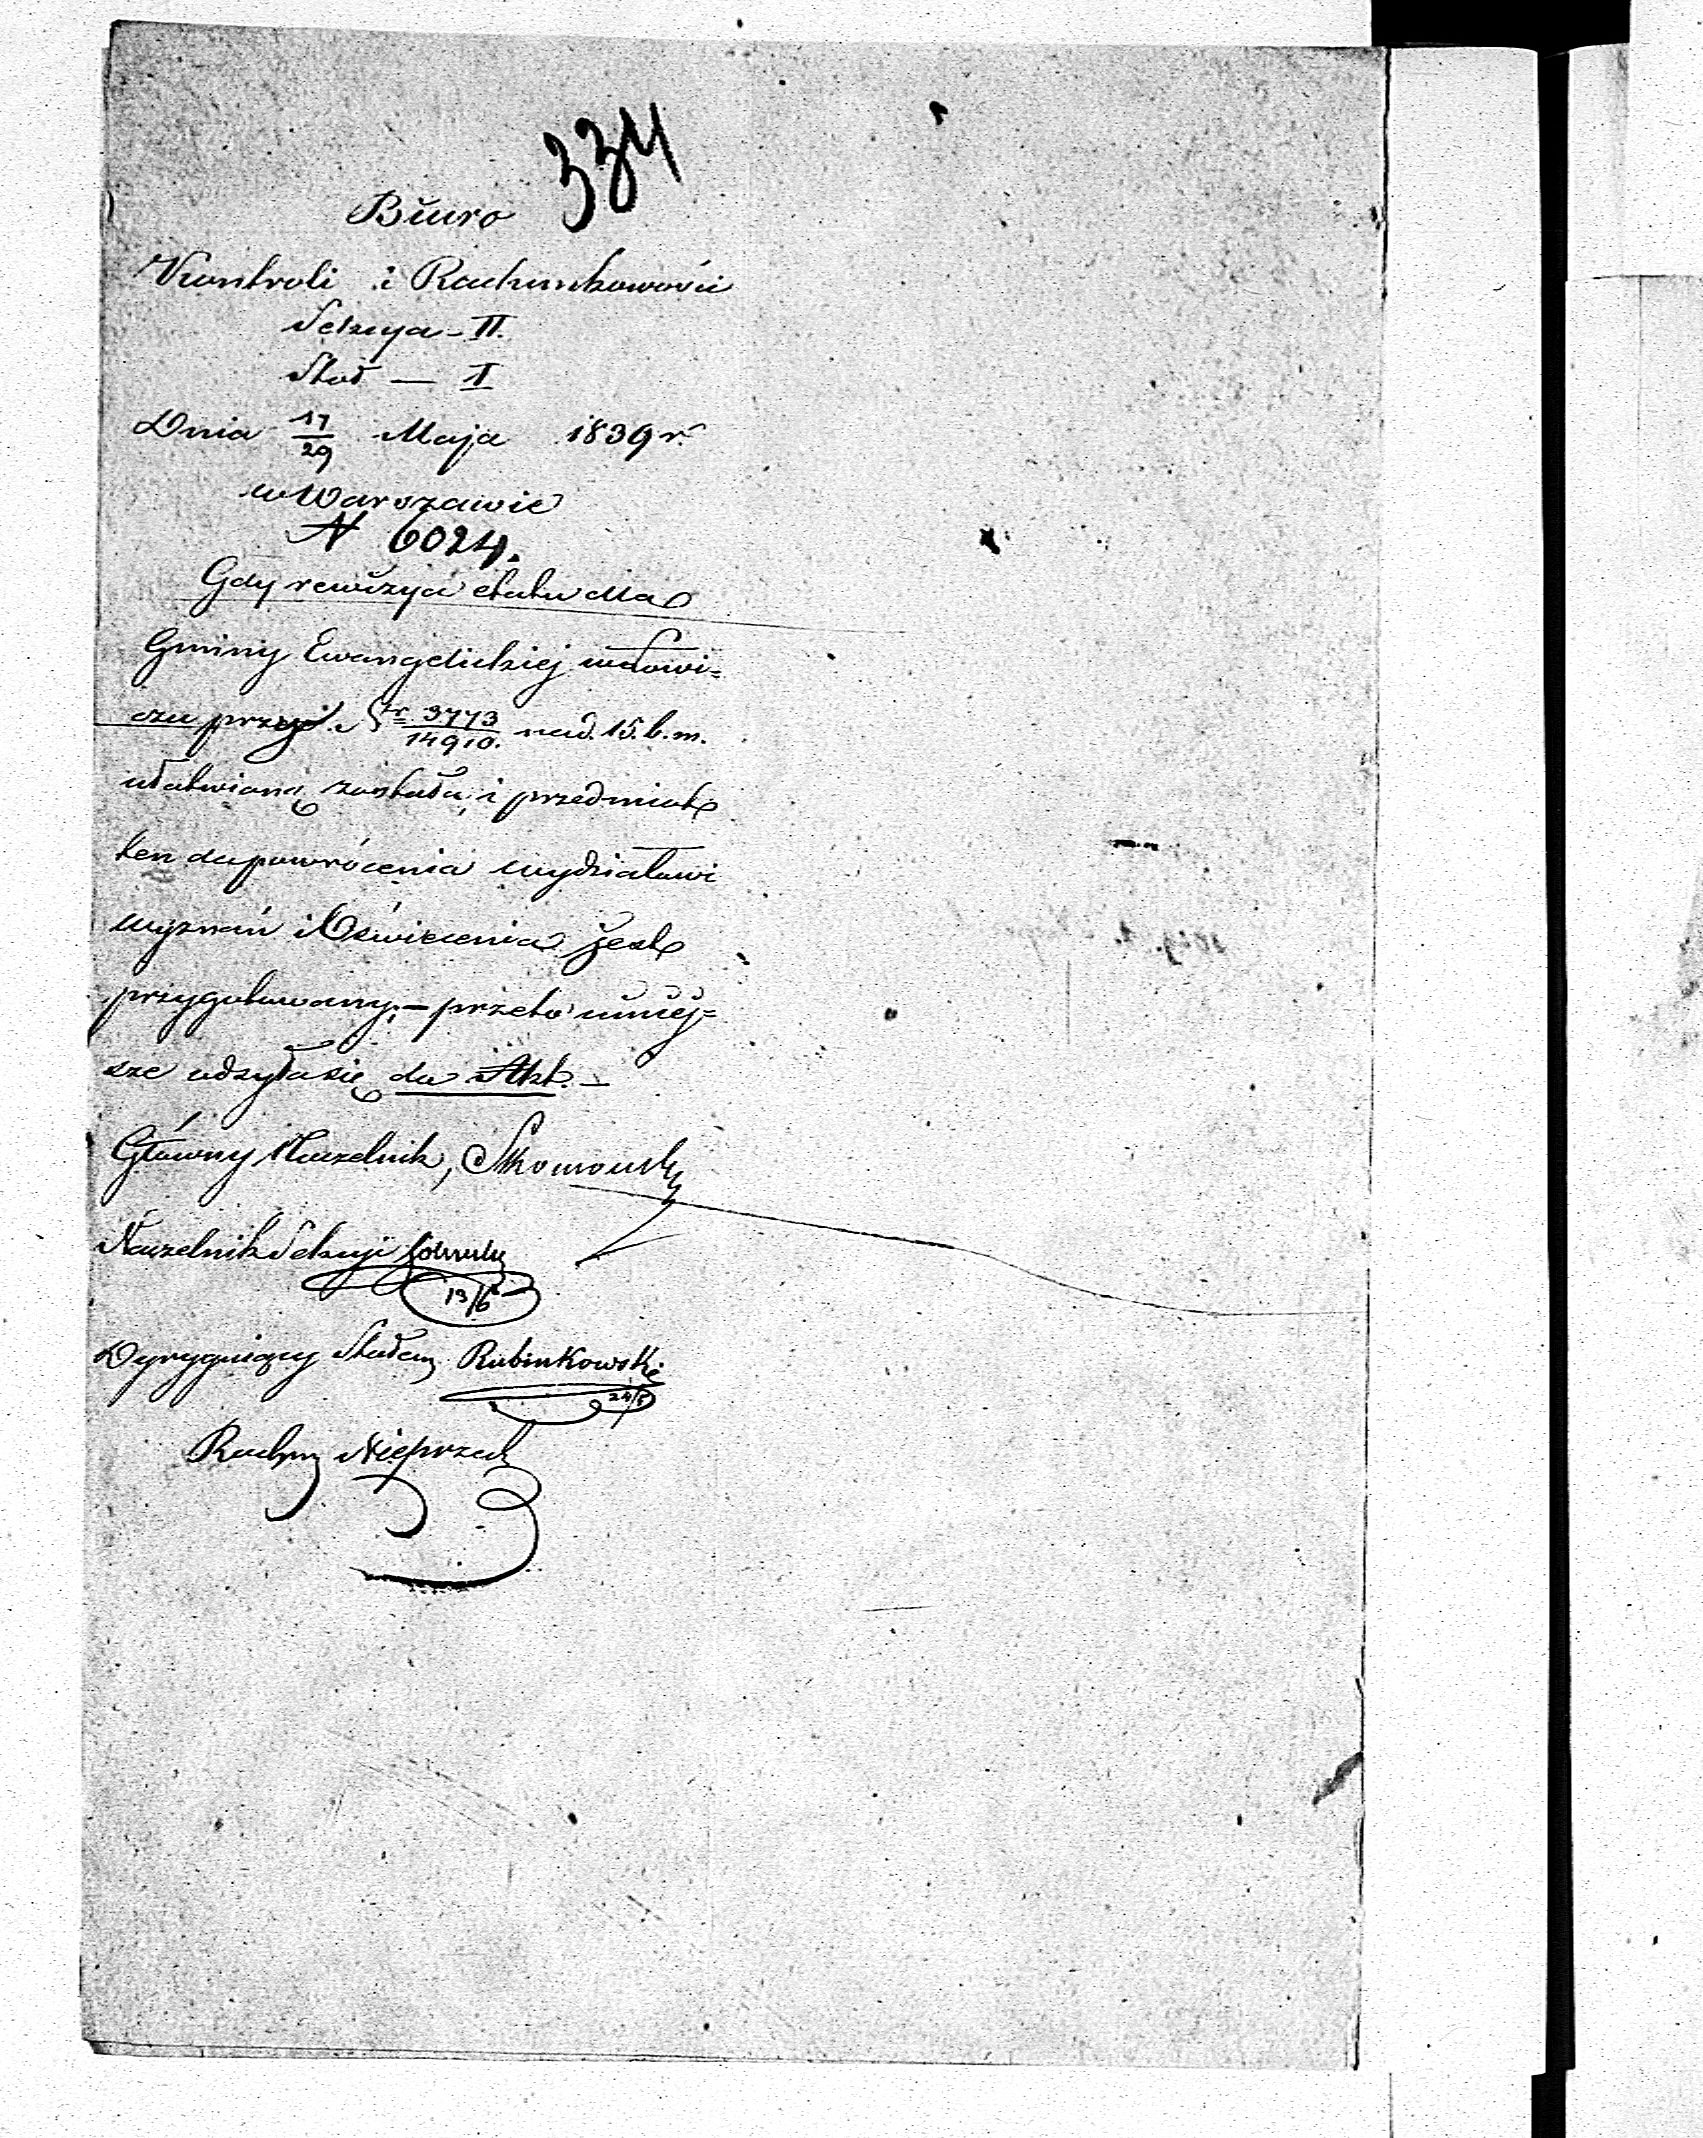 334
Biuro
Kontroli i Rachunkowości
Sekcya – II.
Stół — I
Dnia 17/29 Maja 1839 r.
w Warszawie
N 6024.
Gdy rewizya etatu dla
Gminy Ewangelickiej w Łowi-
czu przy Nr 3773/14910. nad. 15. b. m.
ułatwioną została, i przedmiot
ten do powrócenia wydziałowi
wyznań i Oświecenia jest
przygotowany; – przeto niniej-
sze odsyła się do Akt. –
Główny Naczelnik,
Naczelnik Sekcyi
13/6
Dyrygujący Stołem Rubinkowski
24/5
Rachm